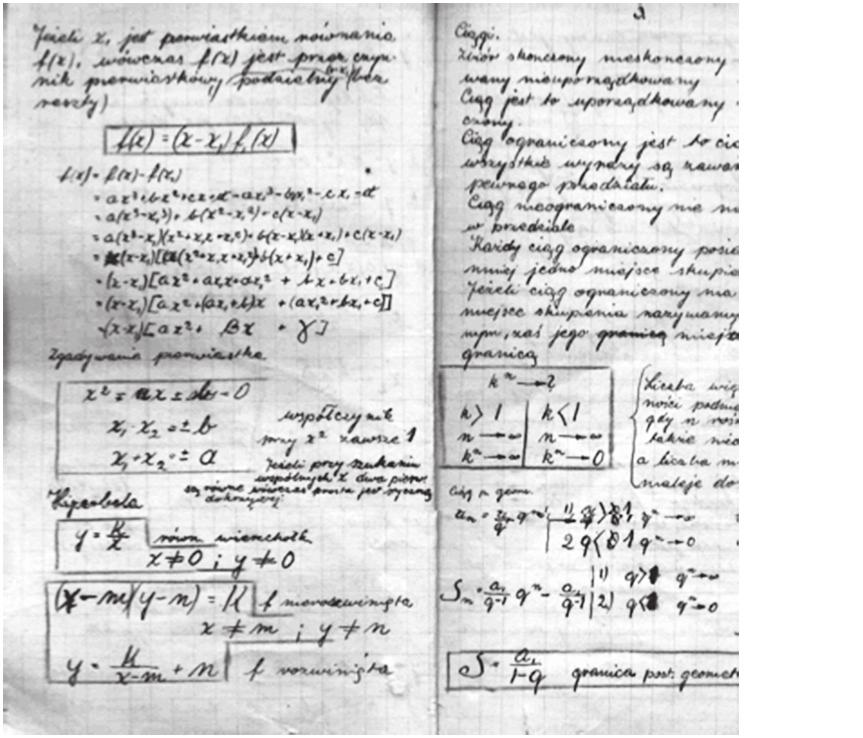 Jeżeli x₁ jest pierwiastkiem równania
f(x), wówczas f(x) jest przez czyn-
nik pierwiastkowy podzielny (bez
reszty)
f(x) = (x-x₁) f₁(x)
f(x) = f(x) - f(x₁)
= ax³+bx²+cx+d-ax₁³-bx₁²-cx₁-d
= a(x³-x₁³)+b(x²-x₁²)+c(x-x₁)
= a(x-x₁)(x²+x₁x+x₁²)+b(x-x₁)(x+x₁)+c(x-x₁)
= (x-x₁)[a(x²+x₁x+x₁²)+b(x+x₁)+c]
= (x-x₁)[ax²+ax₁x+ax₁² + bx+bx₁+c]
= (x-x₁)[ax²+(ax₁+b)x + (ax₁²+bx₁+c)]
= (x-x₁)[ax² + βx + γ]
Zgadywanie pierwiastka
x₁·x₂ = ± b
x₁+x₂ = ± a
współczynnik
przy x² zawsze 1
Jeżeli przy szukaniu
wspólnych x dwa pierw.
są równe wówczas prosta jest styczną
Hiperbola
y = k/x równ wierzchołk
x ≠ 0 ; y ≠ 0
(x-m)(y-n) = k f nierozwinięta
x ≠ m ; y ≠ n
y = k/(x-m) + n f rozwinięta
Ciągi.
Zbiór skończony nieskończony
wany nieuporządkowany
Ciąg jest to uporządkowany
czony.
Ciąg ograniczony jest to cią
wszystkie wyrazy są zawar
pewnego przedziału.
Ciąg nieograniczony nie m
w przedziale
Każdy ciąg ograniczony posia
mniej jedno miejsce skupie
Jeżeli ciąg ograniczony ma
miejsce skupienia nazywamy
nym, zaś jego granicą miejs
granicą
kⁿ → ?
k > 1 k < 1
n → ∞ n → ∞
kⁿ → ∞ kⁿ → 0
Liczba wię
ności podnie
gdy n roś
także nie
a liczba m
maleje do
Ciąg n geom.
qⁿ → ∞
2 q < 1 qⁿ → 0
Sₙ = a₁/(q-1) qⁿ - a₁/(q-1) 1) q > 1 qⁿ → ∞
2) q < 1 qⁿ → 0
S = a₁/(1-q) granica post. geomet